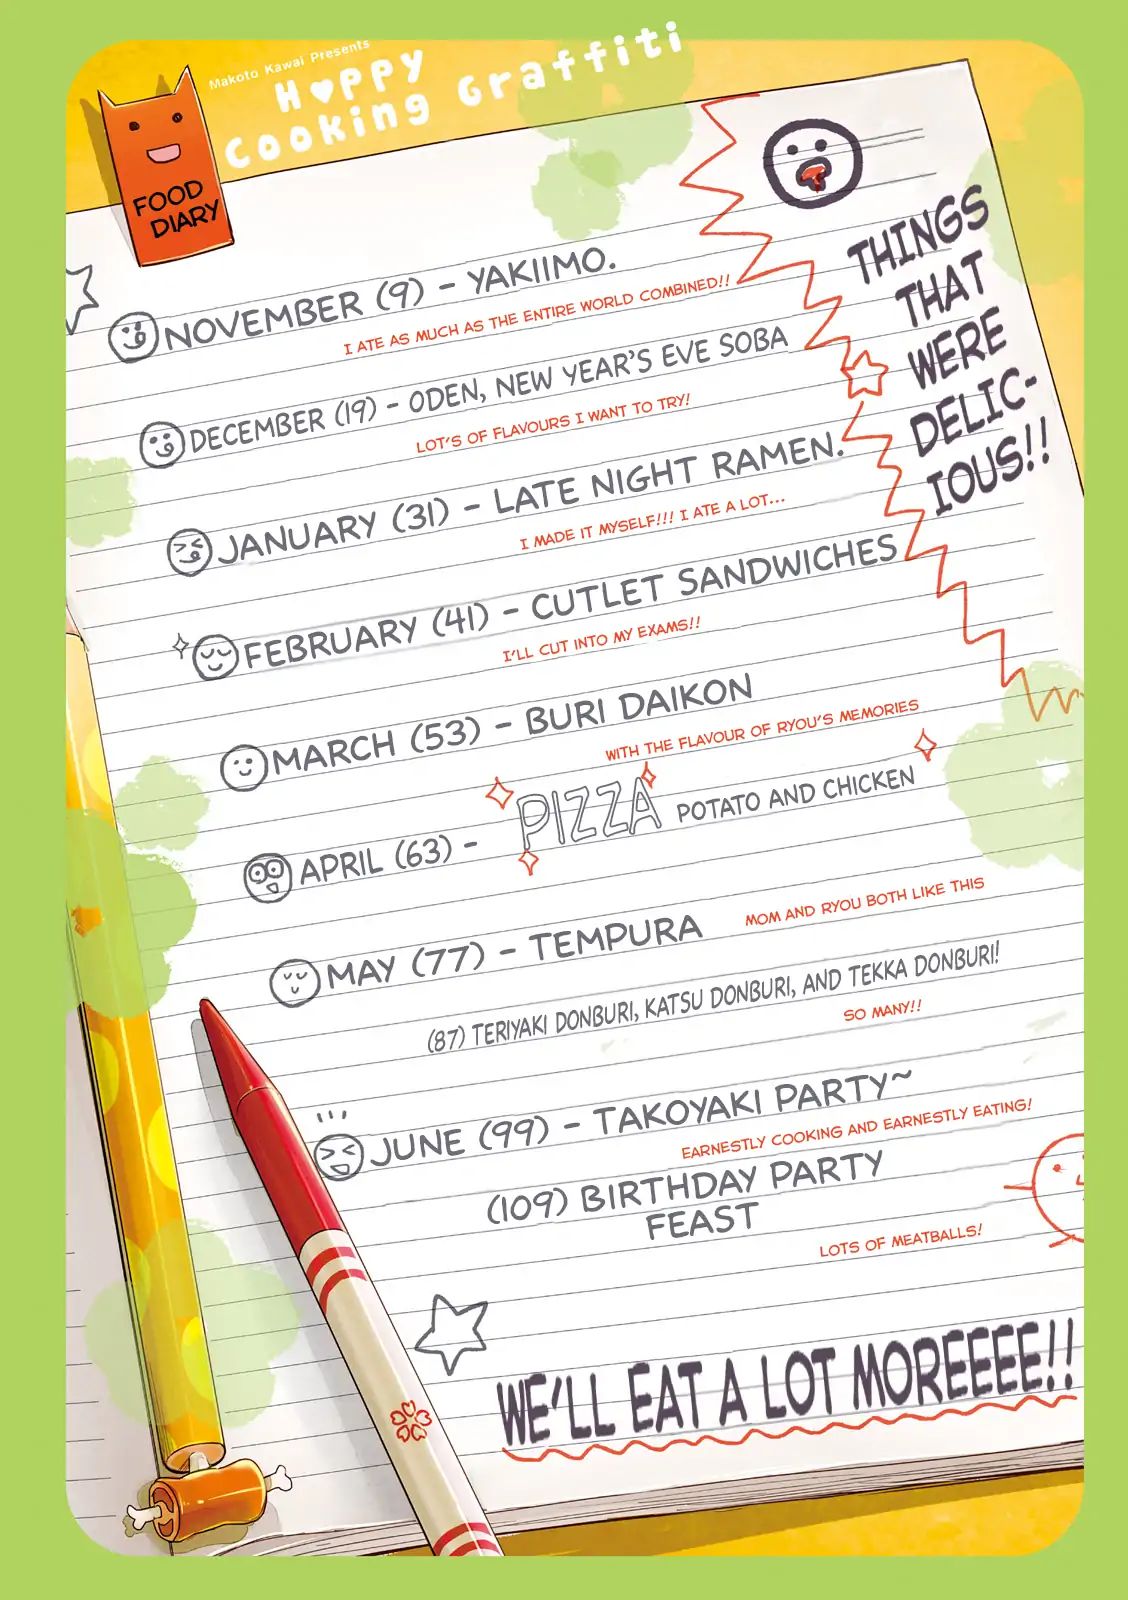 Makoto Kawai Presents
H♥ppy
Cooking Graffiti
FOOD
DIARY
THINGS
THAT
WERE
DELIC-
IOUS!!
NOVEMBER (9) - YAKIIMO.
I ATE AS MUCH AS THE ENTIRE WORLD COMBINED!!
DECEMBER (19) - ODEN, NEW YEAR'S EVE SOBA
LOT'S OF FLAVOURS I WANT TO TRY!
JANUARY (31) - LATE NIGHT RAMEN.
I MADE IT MYSELF!!! I ATE A LOT...
FEBRUARY (41) - CUTLET SANDWICHES
I'LL CUT INTO MY EXAMS!!
MARCH (53) - BURI DAIKON
WITH THE FLAVOUR OF RYOU'S MEMORIES
APRIL (63) - PIZZA POTATO AND CHICKEN
MAY (77) - TEMPURA MOM AND RYOU BOTH LIKE THIS
(87) TERIYAKI DONBURI, KATSU DONBURI, AND TEKKA DONBURI!
SO MANY!!
JUNE (99) - TAKOYAKI PARTY~
EARNESTLY COOKING AND EARNESTLY EATING!
(109) BIRTHDAY PARTY
FEAST
LOTS OF MEATBALLS!
WE'LL EAT A LOT MOREEEE!!